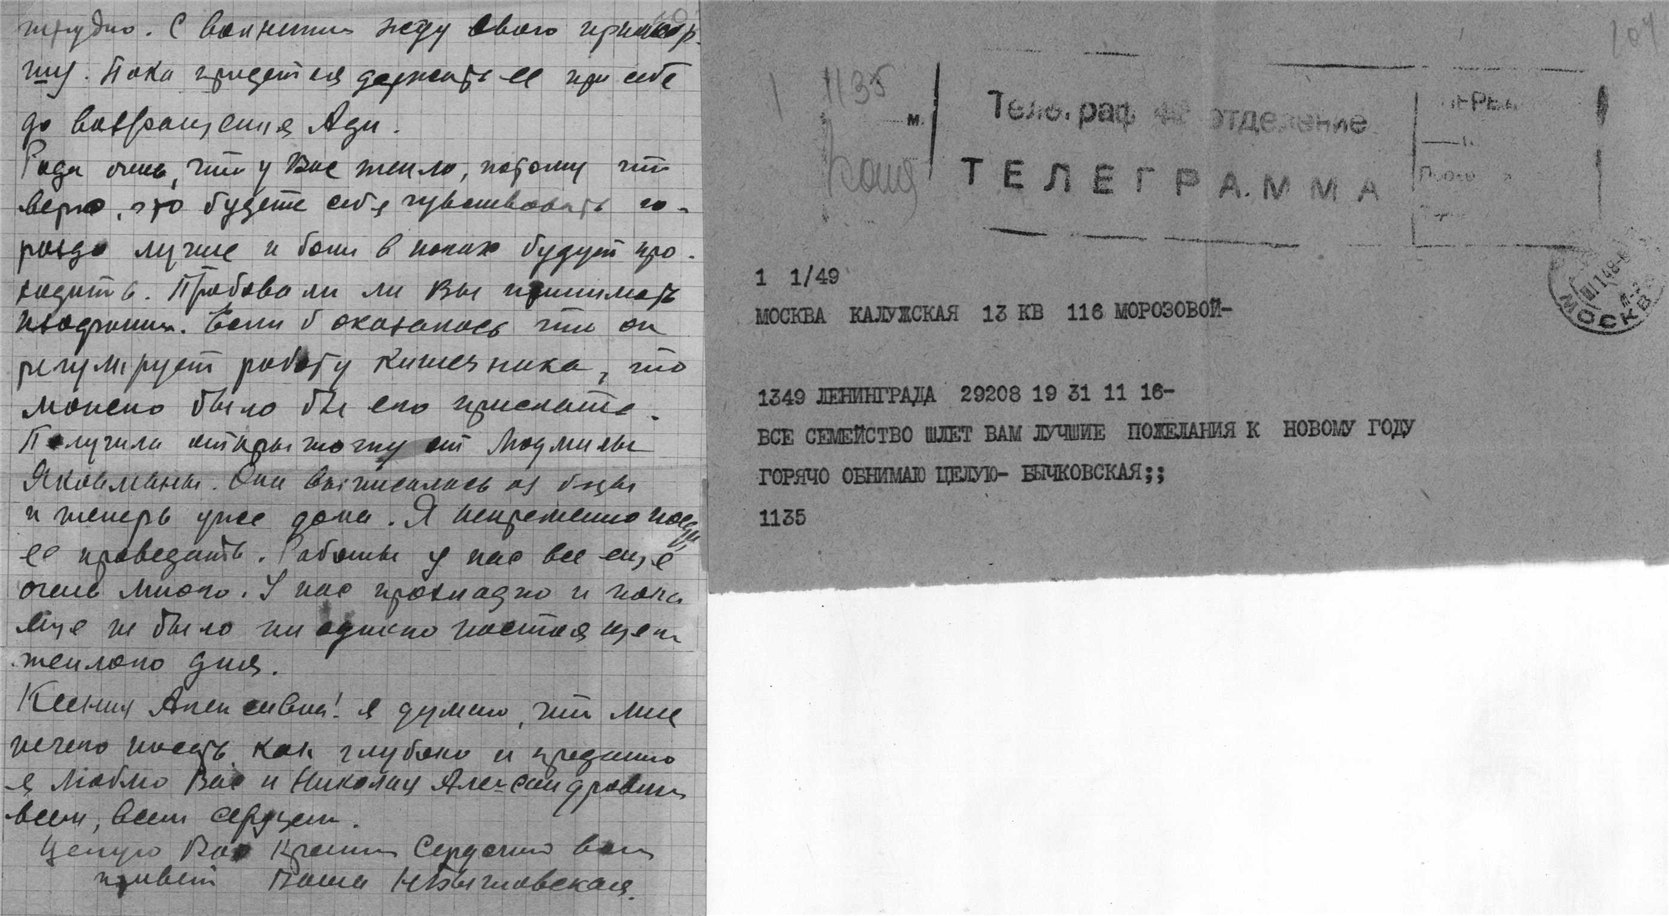 трудно. С волнением жду свою
Пока придется держать ее при себе
до возвращения Ади.
Рада очень, что у Вас тепло, потому что
верно, это будете себя чувствовать го-
раздо лучше и боли в ногах будут про-
ходить. Пробовали ли Вы принимать
Если б оказалось что он
регулирует работу кишечника, то
можно было бы его прислать.
Получила открыточку от Людмилы
Яковлевны. Она выписалась из б-цы
и теперь уже дома. Я непременно поеду
ее проведать. Работы у нас все еще
очень много. У нас прохладно и пока
еще не было ни одного настоящего
теплого дня.
Ксения Алексеевна! я думаю, что мне
нечего писать, как глубоко и преданно
я люблю Вас и Николая Александровича
всем, всем сердцем.
Целую Вас крепко Сердечно Вам
привет Ваша Н Бычковская.
204
1135
м.
Телеграф отделение
ТЕЛЕГРАММА
1 1/49
МОСКВА КАЛУЖСКАЯ 13 КВ 116 МОРОЗОВОЙ-
МОСКВА
1349 ЛЕНИНГРАДА 29208 19 31 11 16-
ВСЕ СЕМЕЙСТВО ШЛЕТ ВАМ ЛУЧШИЕ ПОЖЕЛАНИЯ К НОВОМУ ГОДУ
ГОРЯЧО ОБНИМАЮ ЦЕЛУЮ- БЫЧКОВСКАЯ;;
1135